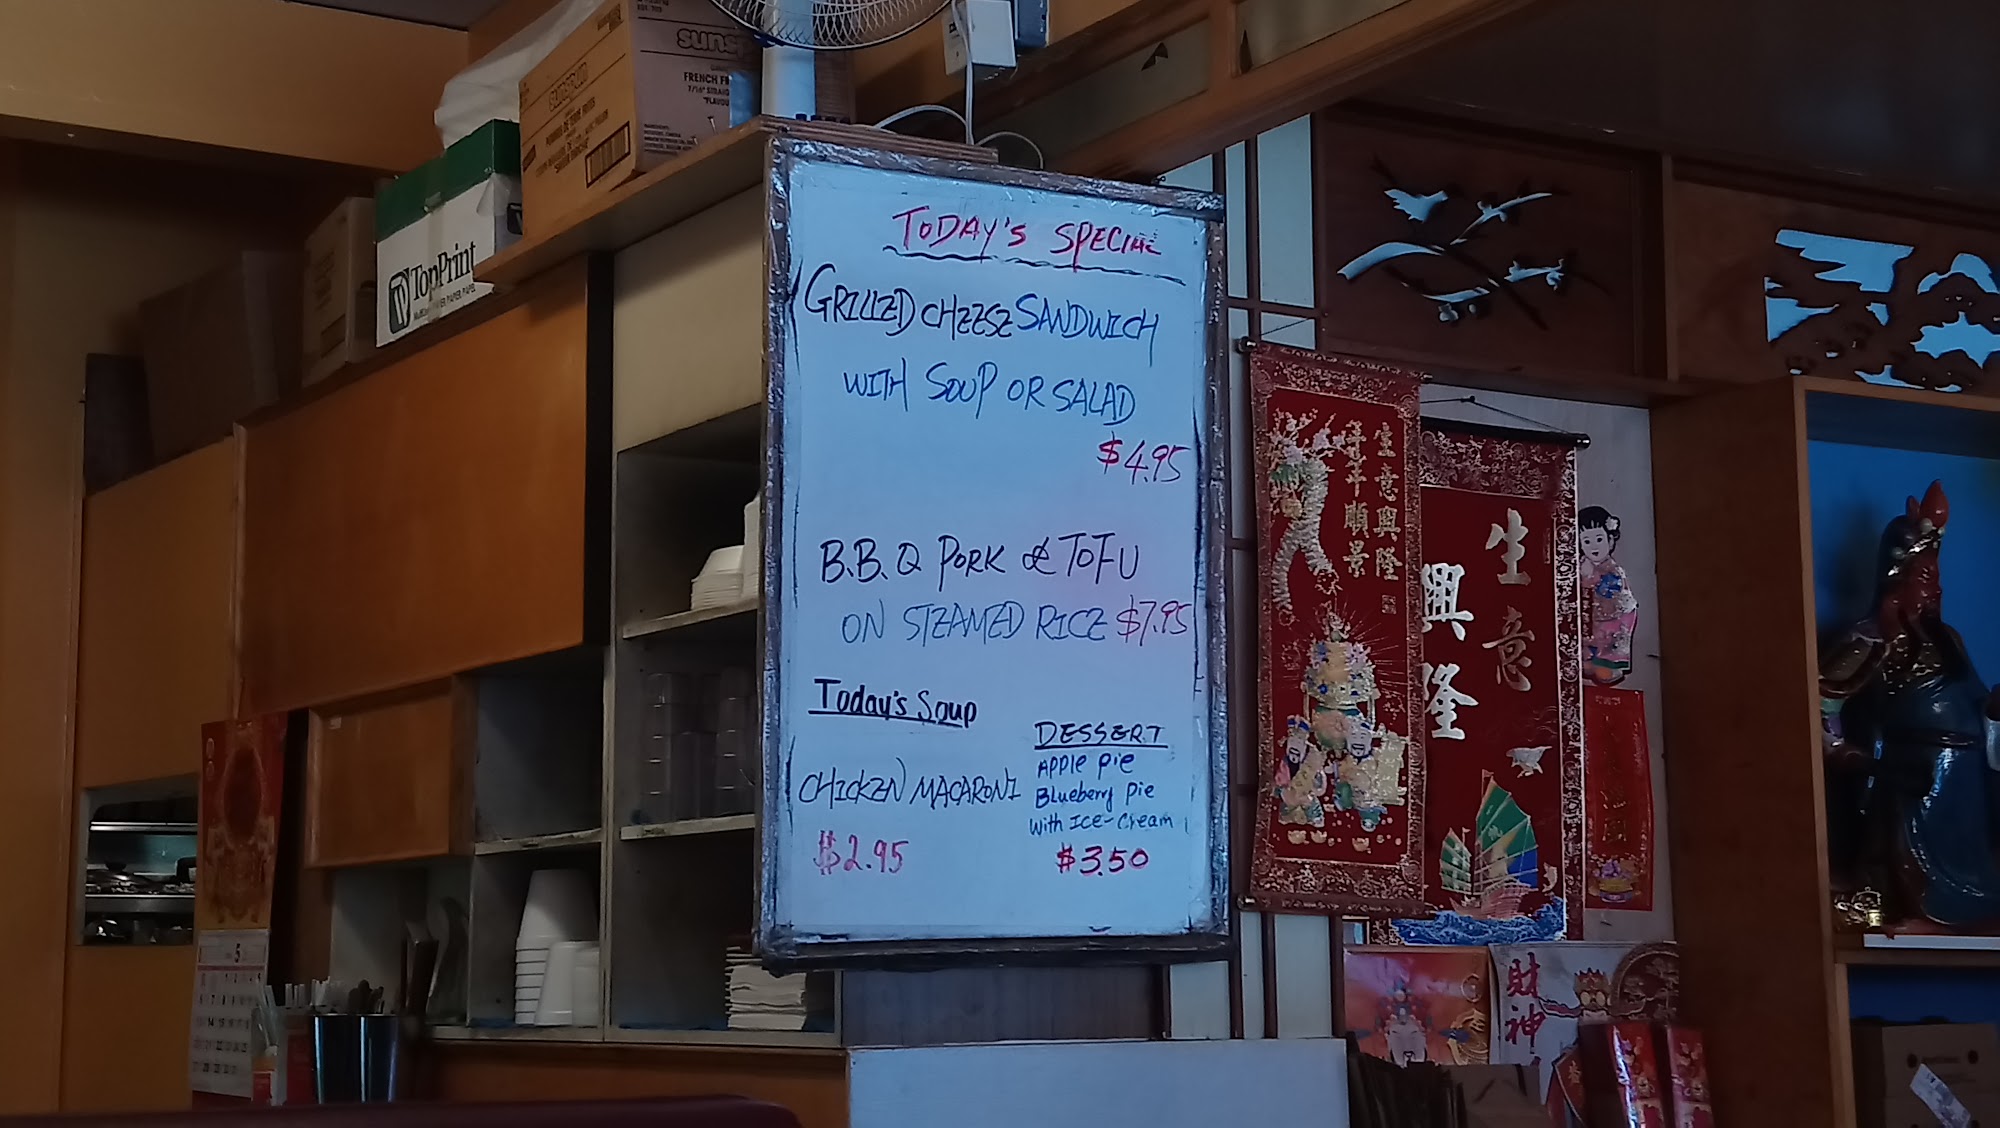 suns
FRENCH F
7/16" STRAIG
TopPrint
TODAY'S SPECIAL
GRILLED CHEESE SANDWICH
WITH SOUP OR SALAD
$4.95
B.B.Q PORK & TOFU
ON STEAMED RICE $7.95
Today's Soup
CHICKEN MACARONI
$2.95
DESSERT
APPLE Pie
Blueberry Pie
With ICE-Cream
$3.50
生意興隆
年年順景
生意
興隆
財神
5